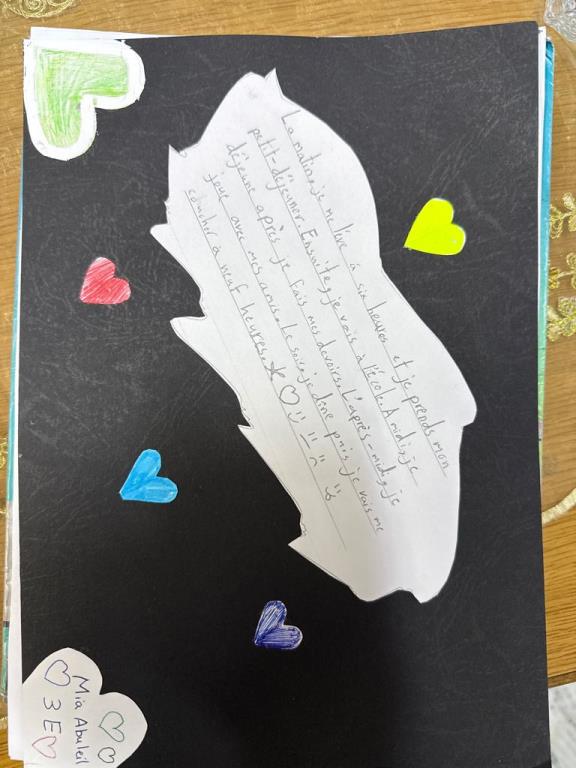 La matin, je me lève à six heures et je prends mon
petit-déjeuner. Ensuite, je vais à l'école. A midi, je
déjeune après je fais mes devoirs. L'après-midi, je
joue avec mes amis. Le soir, je dîne puis je vais me
coucher à neuf heures.
Mia Abuleil
3 E